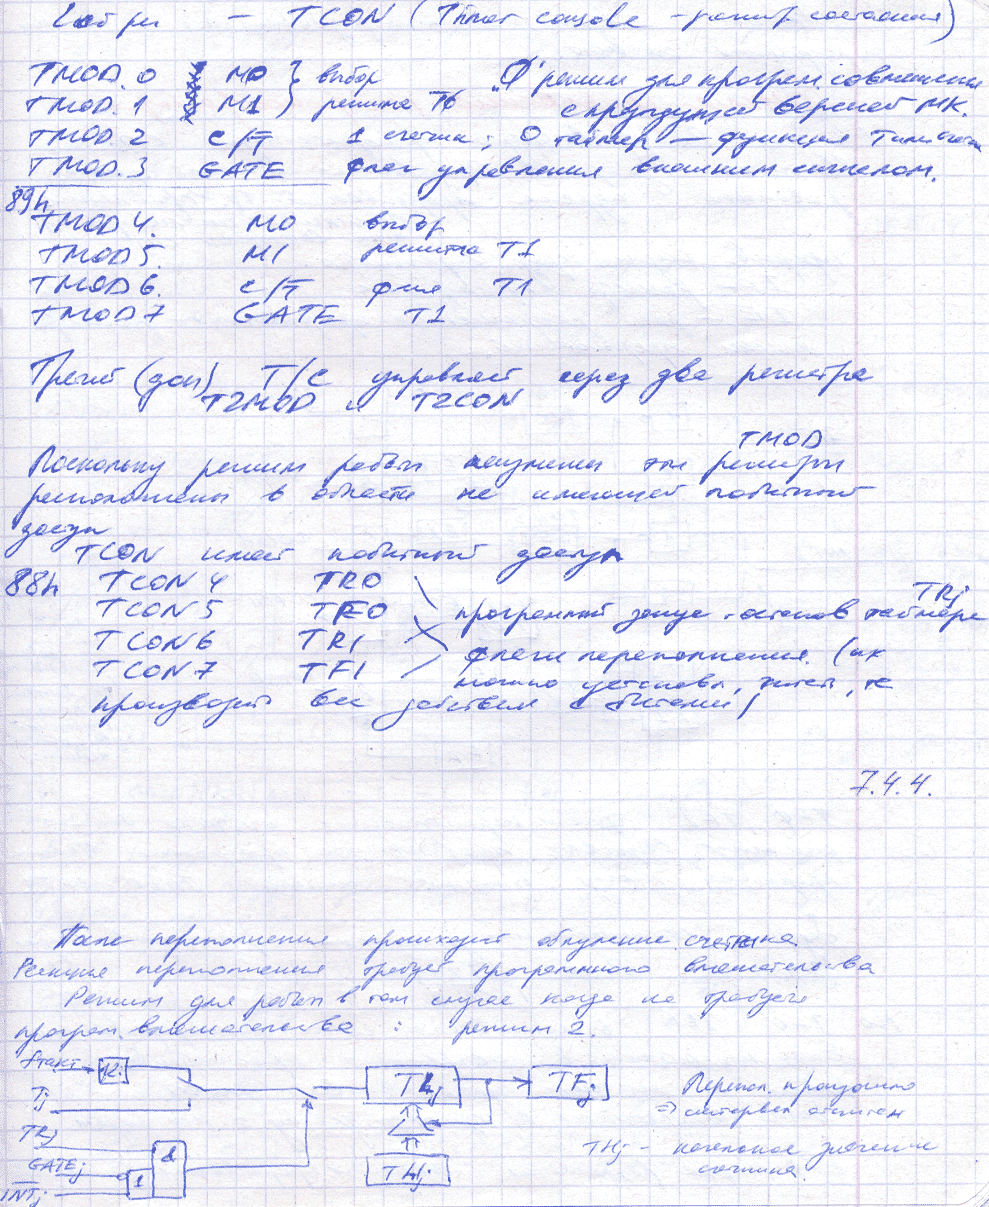 — TCON (Timer
TMOD.0 M0 } выбор "0" режим для програм. совместим
TMOD.1 M1 } режима T0 с предыдущей версией МК.
TMOD.2 C/T̅ 1 счетчик; 0 таймер — функция
TMOD.3 GATE флаг управления внешним сигналом.
89h
TMOD4. M0 выбор
TMOD5. M1 режима T1
TMOD6. C/T̅ T1
TMOD7 GATE T1
Третий (доп) T/C управляет через два регистра
T2MOD и T2CON
TMOD
Поскольку режим работы эти регистры
расположены в области не имеющей побитный
доступ
TCON имеет побитный доступ
88h TCON4 TR0
TRj
TCON5 TF0 програмный запуск - останов таймера
TCON6 TR1
флаги переполнения. (их
TCON7 TF1
можно установ, , и
производить все действия с битами)
7.4.4.
После переполнения происходит обнуление счетчика.
Реакция переполнения требует программного вмешательства
Режим для работы в том случае когда не требуется
програм. вмешательства : режим 2.
fтакт 12 TLj TFj
Перепол. произошло
Tj
⇒ интервал отсчитан
TRj &
THj - начальное значение
счетчика
GATEj 1 THj
INTj